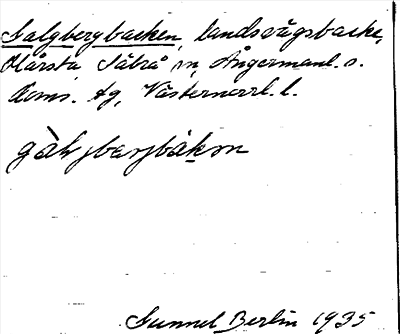 Galgbergbacken, landsvägsbacke,
Hårsta Säbrå sn, Ångermanl. s.
doms. tg, Västernorrl. l.
gàlgbærjbákən
Gunnel Berlin 1935